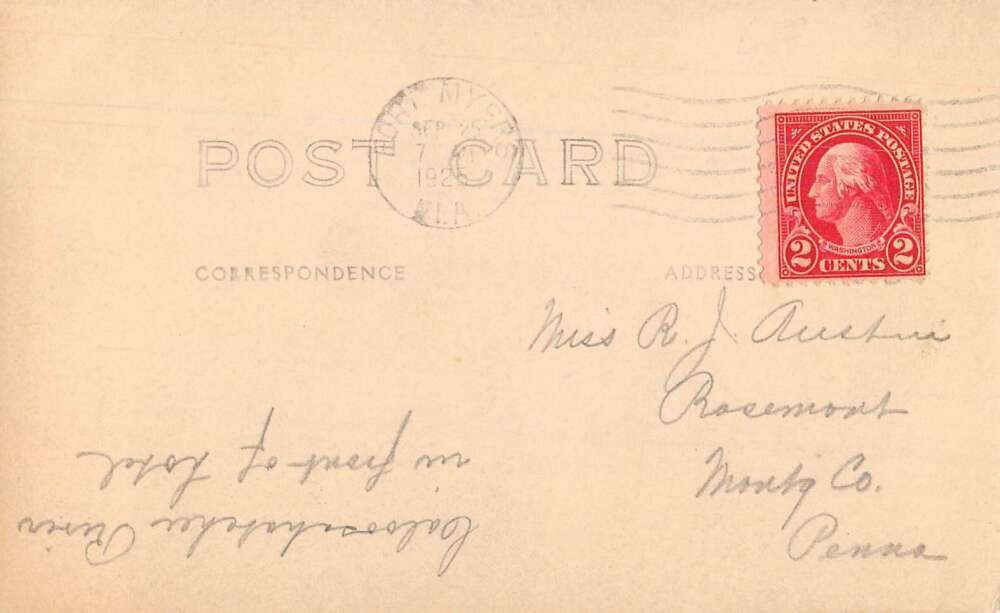 FORT MYERS
SEP 25
7
1926
FLA.
POST CARD
UNITED STATES POSTAGE
WASHINGTON
2 CENTS 2
CORRESPONDENCE
ADDRESS
Miss R. J. Austin
Rosemont
Montg Co.
Penna
Caloosahatchee River
in front of hotel